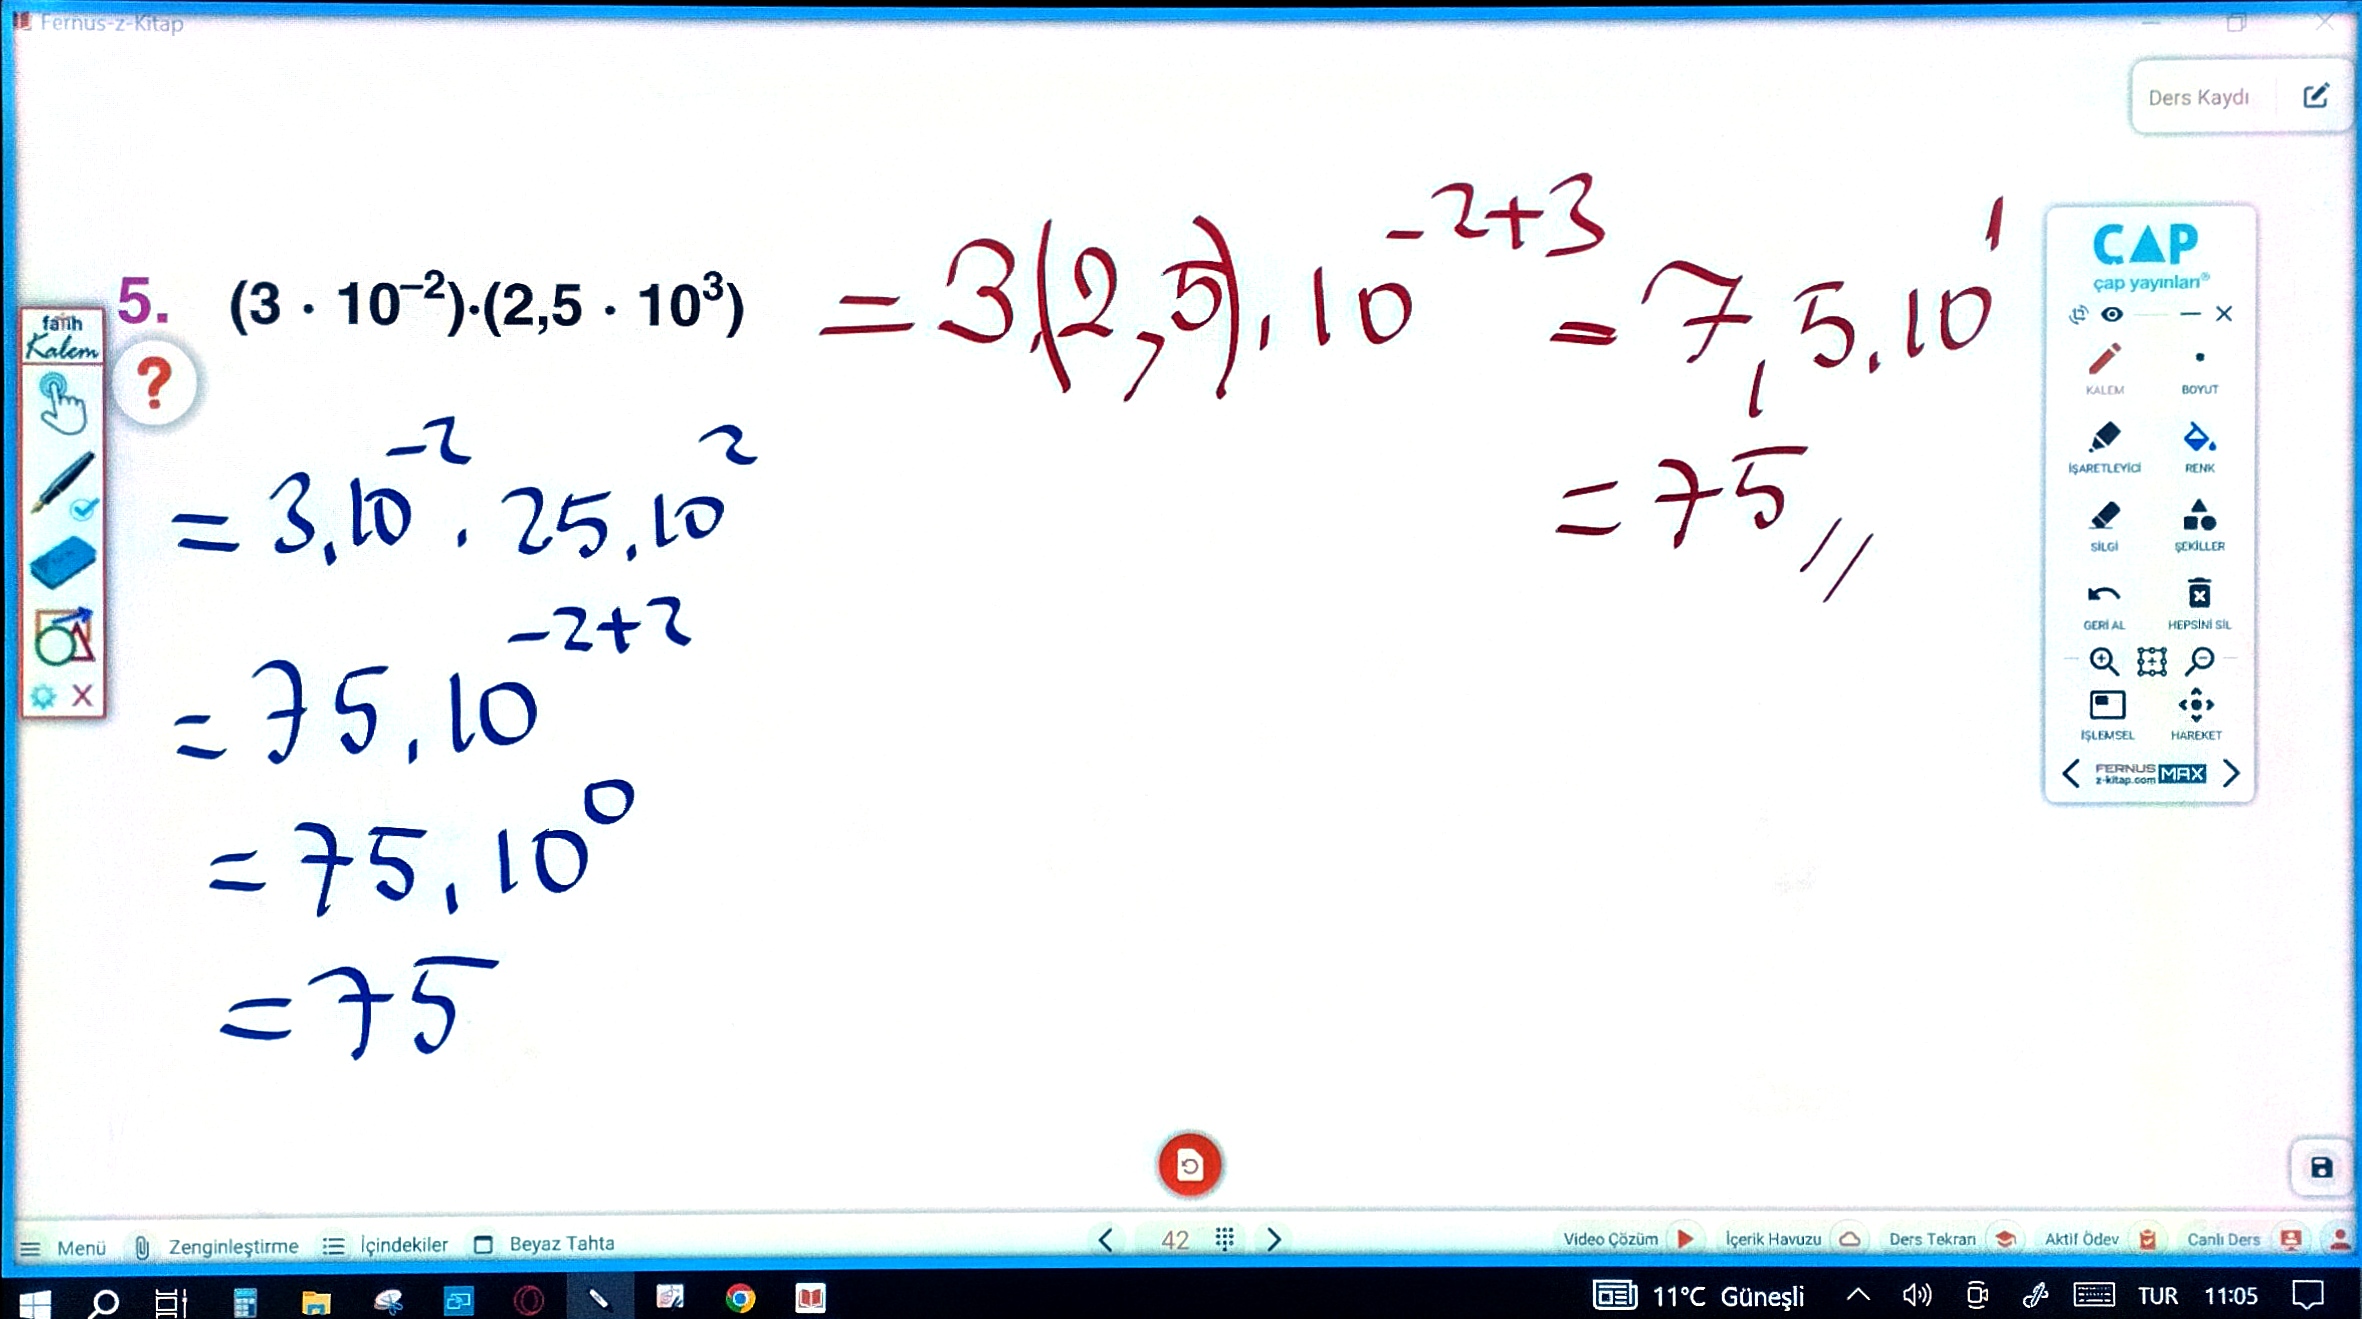 Fernus-z-Kitap
Ders Kaydı
5. (3 · 10⁻²)·(2,5 · 10³) = 3.(2,5).10⁻²⁺³ = 7,5.10¹
= 75 //
= 3.10⁻² . 25.10²
= 75.10⁻²⁺²
= 75.10⁰
= 75
fatih
Kalem
?
CAP
çap yayınları®
KALEM BOYUT
İŞARETLEYİCİ RENK
SİLGİ ŞEKİLLER
GERİ AL HEPSİNİ SİL
İŞLEMSEL HAREKET
FERNUS MAX
z-kitap.com
Menü Zenginleştirme İçindekiler Beyaz Tahta 42 Video Çözüm İçerik Havuzu Ders Tekrarı Aktif Ödev Canlı Ders
11°C Güneşli TUR 11:05